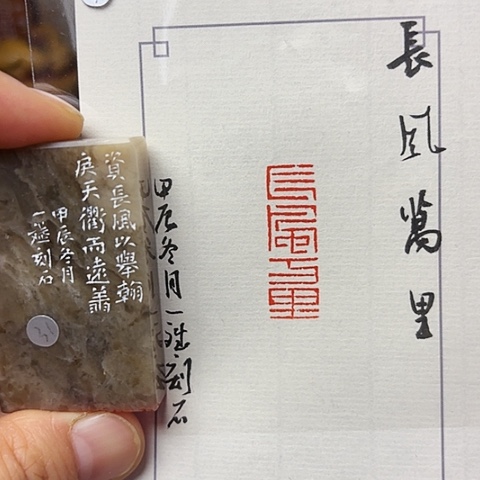 長風萬里
長風万里
甲辰冬月一刻石
資長風以舉翰
戾天衢而遠翥
甲辰冬月
一刻石